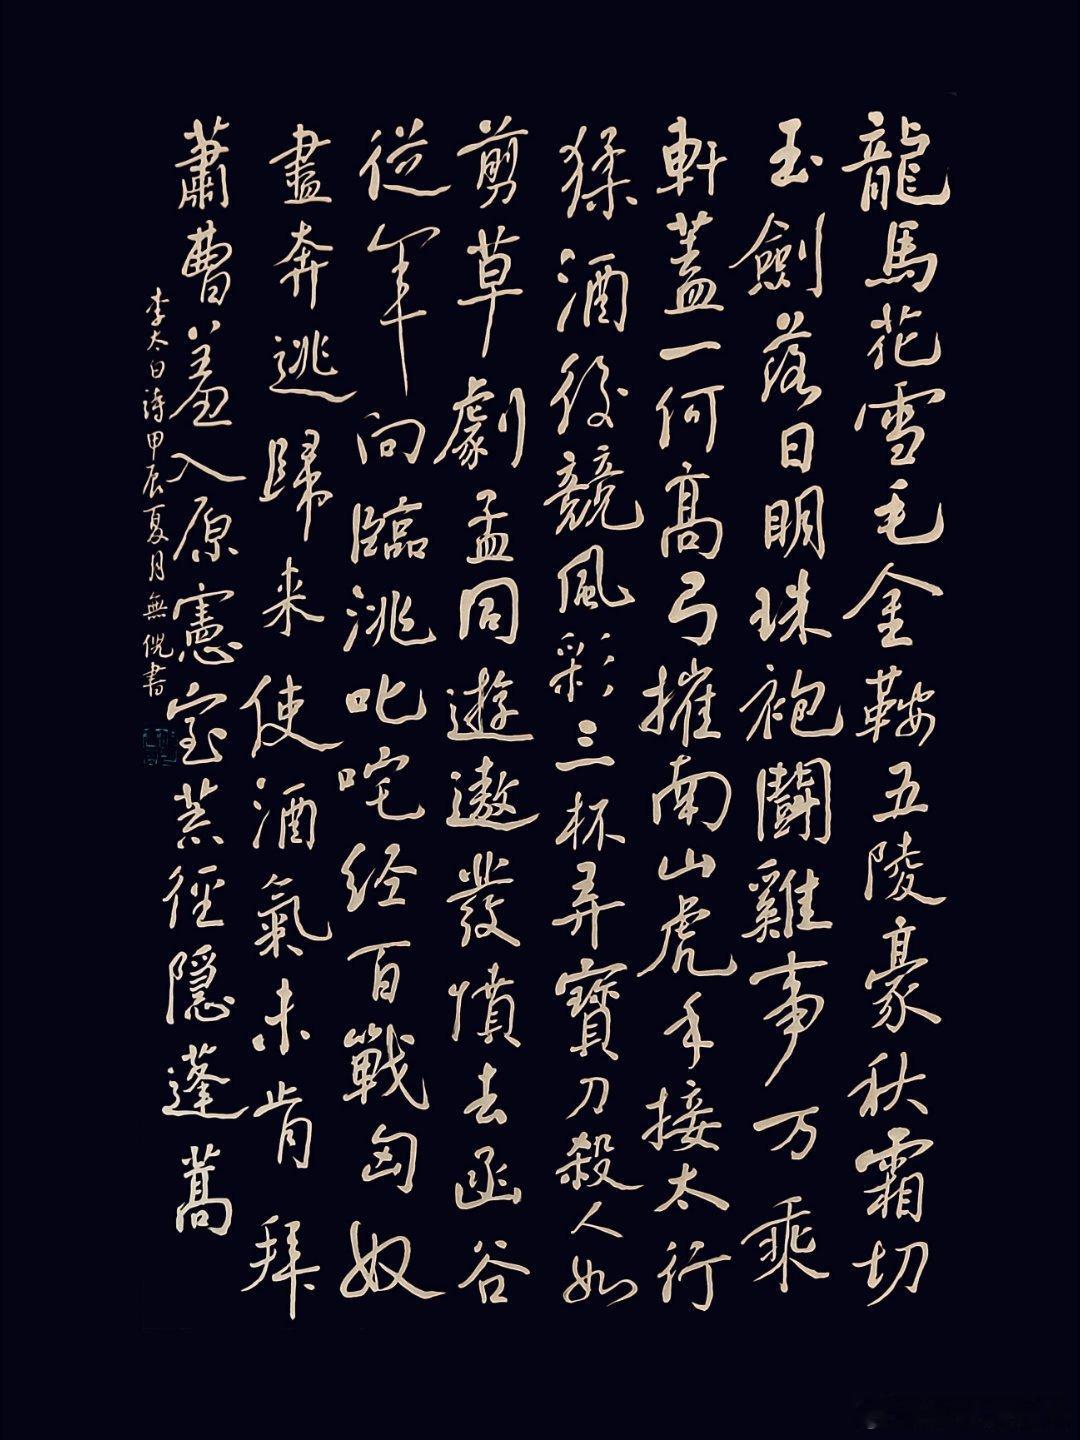 龍馬花雪毛金鞍五陵豪秋霜切
玉劍落日明珠袍鬪雞事万乘
軒蓋一何高弓摧南山虎手接太行
猱酒後競風彩三杯弄寶刀殺人如
剪草劇孟同遊遨發憤去函谷
從軍向臨洮叱咤经百戰匈奴
盡奔逃歸来使酒氣未肯拜
蕭曹羞入原憲室荒徑隱蓬蒿
李太白詩甲辰夏月無倪書